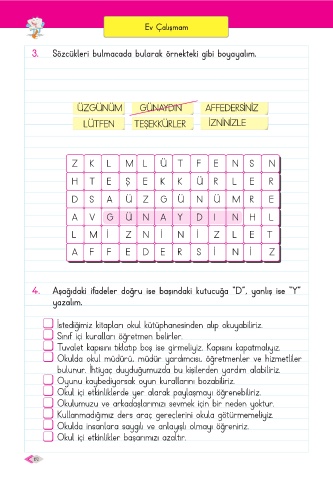 Ev Çalışmam
3. Sözcükleri bulmacada bularak örnekteki gibi boyayalım.
ÜZGÜNÜM GÜNAYDIN AFFEDERSİNİZ
LÜTFEN TEŞEKKÜRLER İZNİNİZLE
Z K L M L Ü T F E N S N
H T E Ş E K K Ü R L E R
D S A Ü Z G Ü N Ü M R E
A V G Ü N A Y D I N H L
L M İ Z N İ N İ Z L E T
A F F E D E R S İ N İ Z
4. Aşağıdaki ifadeler doğru ise başındaki kutucuğa "D", yanlış ise "Y"
yazalım.
İstediğimiz kitapları okul kütüphanesinden alıp okuyabiliriz.
Sınıf içi kuralları öğretmen belirler.
Tuvalet kapısını tıklatıp boş ise girmeliyiz. Kapısını kapatmalıyız.
Okulda okul müdürü, müdür yardımcısı, öğretmenler ve hizmetliler
bulunur. İhtiyaç duyduğumuzda bu kişilerden yardım alabiliriz.
Oyunu kaybediyorsak oyun kurallarını bozabiliriz.
Okul içi etkinliklerde yer alarak paylaşmayı öğrenebiliriz.
Okulumuzu ve arkadaşlarımızı sevmek için bir neden yoktur.
Kullanmadığımız ders araç gereçlerini okula götürmemeliyiz.
Okulda insanlara saygılı ve anlayışlı olmayı öğreniriz.
Okul içi etkinlikler başarımızı azaltır.